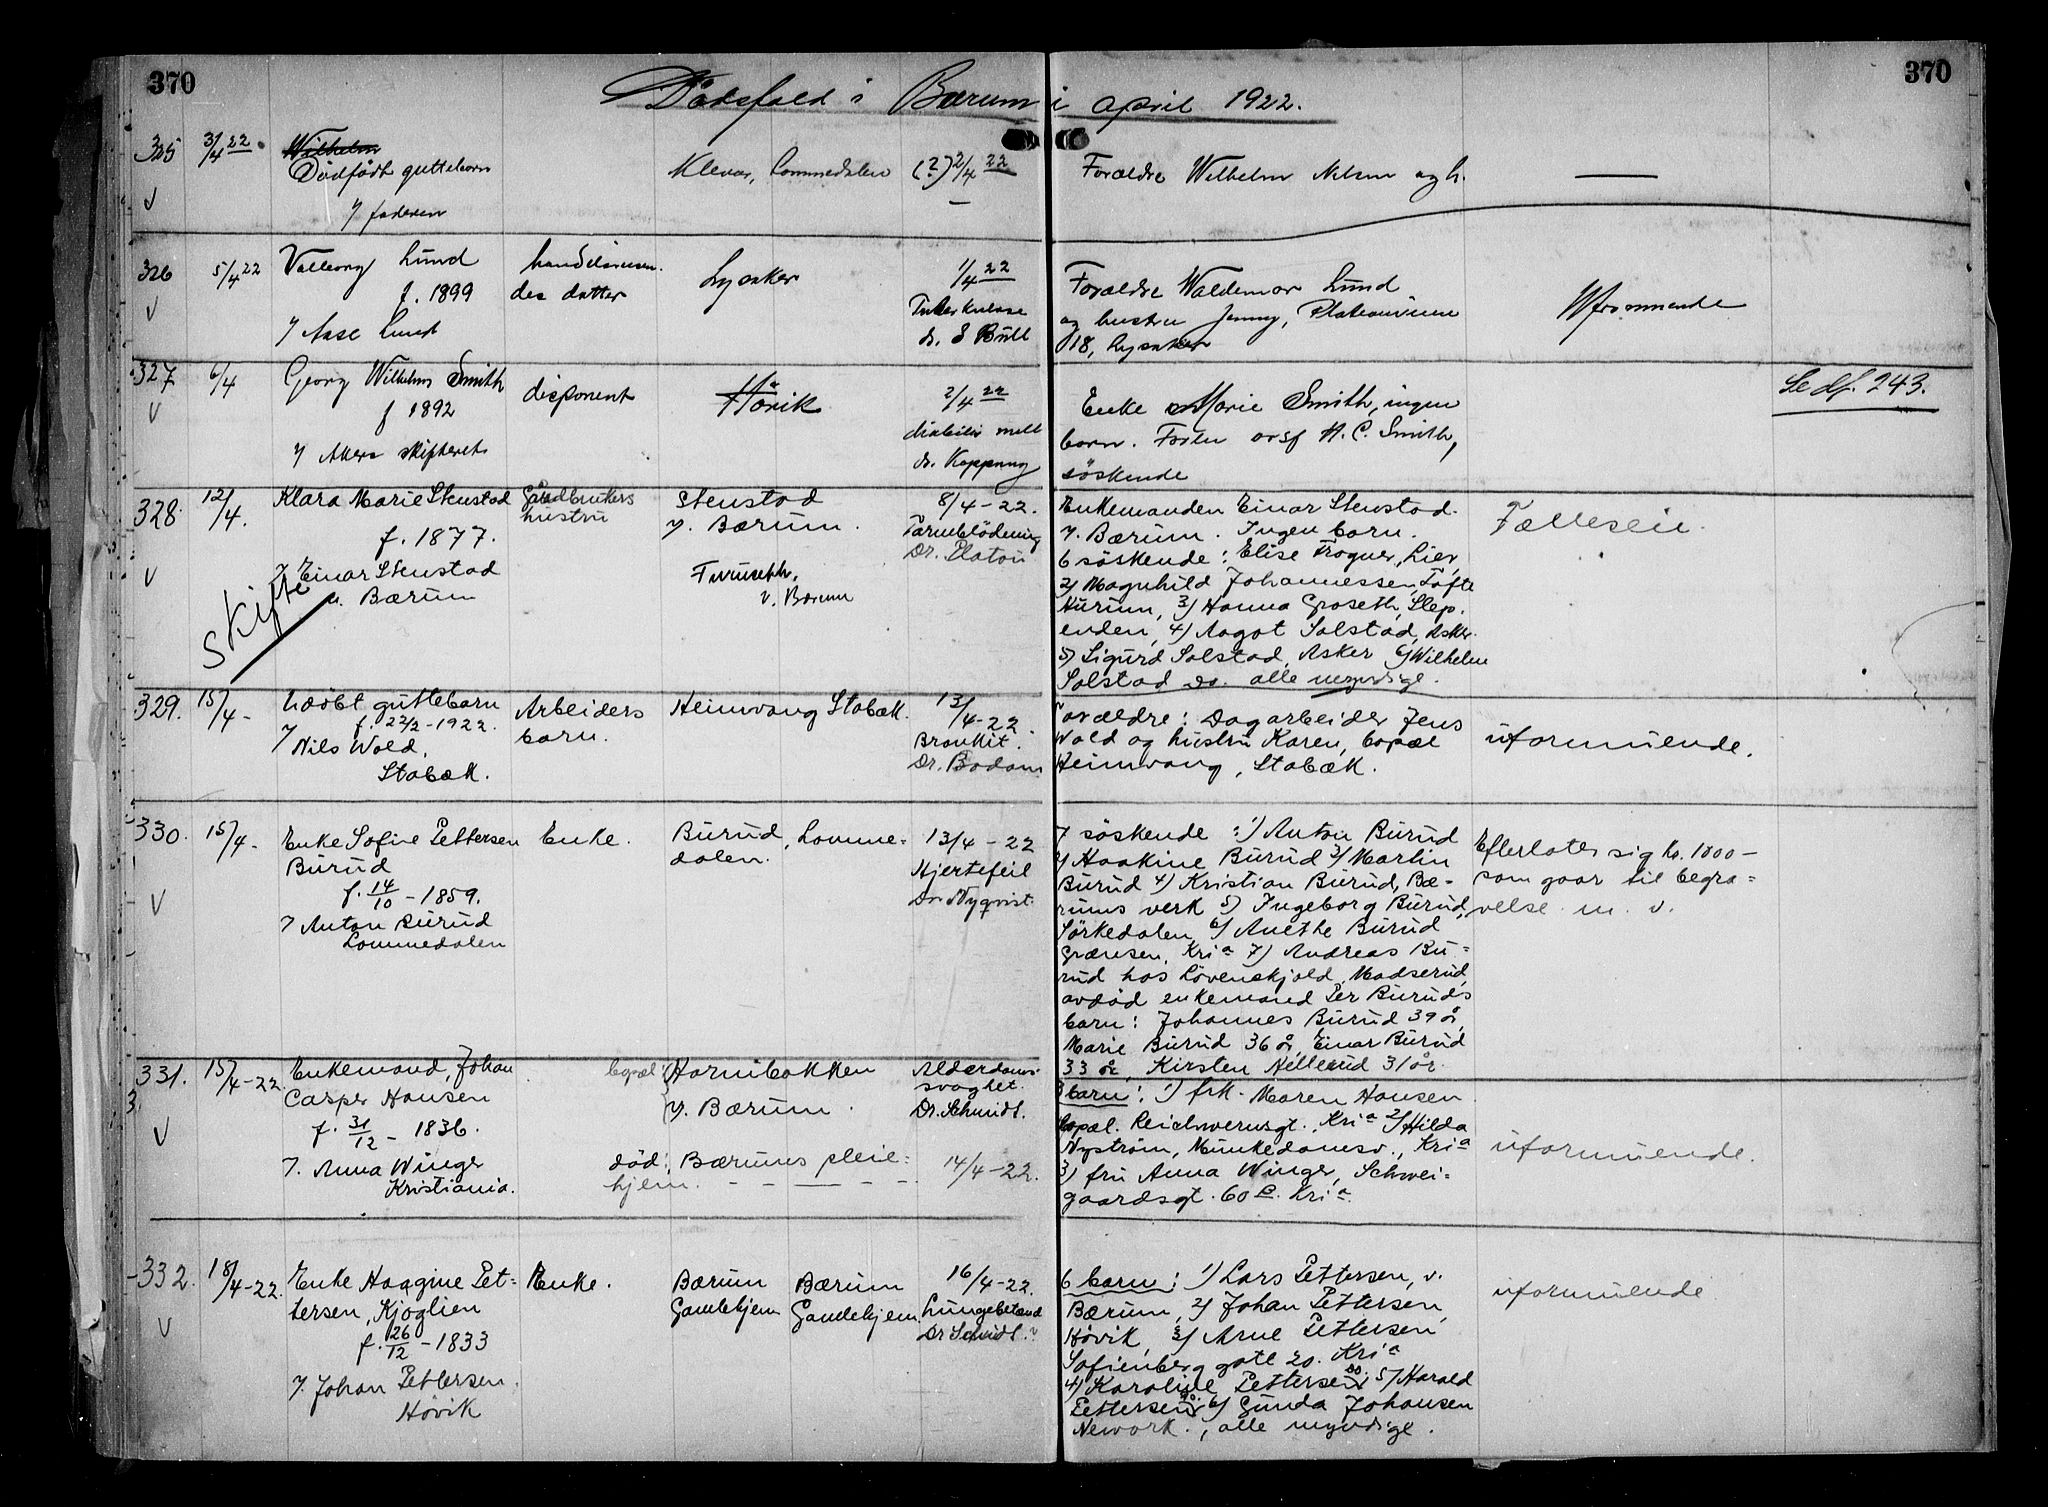 370
370
Dødsfald i Bærum i april 1922.
325
3/4 22
Wilhelm
Dødfødt guttebarn
7 faderen
Lommedalen
(?) 2/4 22
Forældre Wilhelm Nilsen og h.
—
326
5/4 22
Valborg Lund
f. 1899
7 Aase Lund
des datter
Lysaker
1/4 22
Tuberkulose
dr. S Bull
Forældre Waldemar Lund
og hustru Jenny,
18, Lysaker
Uformuende
327
6/4
Georg Wilhelm Smith
f 1892
7 Akers skifteret
disponent
Høvik
2/4 22
diabetis mell
dr. Koppang
Enke Marie Smith, ingen
barn. H. C. Smith,
søskende
Se df. 243.
328
12/4.
Klara Marie Stenstad
f. 1877.
7 Einar Stenstad
v. Bærum
skifte
Gaardbrukers
hustru
Stenstad
V. Bærum.
v. Bærum
8/4-22.
Tarmblødning
Dr. Platou
Enkemanden Einar Stenstad.
V. Bærum. Ingen barn.
6 søskende: Elise Frogner, Lier,
2) Magnhild Johannessen, Tofte
Hurum, 3) Hanna Groseth, Slep-
enden, 4) Aagot Solstad, Asker.
5) Sigurd Solstad, Asker 6) Wilhelm
Solstad do. alle myndige.
Fælleseie.
329.
15/4-
Udøbt guttebarn
f. 22/2-1922.
7
Nils Wold,
Stabæk.
Arbeiders
barn.
Heimvang Stabæk.
13/4-22
Bronkit.
Dr. Bodom
Forældre: Dagarbeider Jens
Wold og hustru Karen, bopæl
Heimvang, Stabæk.
uformuende.
330.
15/4-
Enke Sofie Pettersen
Burud
f. 14/10-1859.
7 Anton Burud
Lommedalen
Enke.
Burud, Lomme-
dalen.
13/4-22
Hjertefeil
Dr. Nyqvist.
7 søskende: 1) Anton Burud
2) Haakine Burud 3) Martin
Burud 4) Kristian Burud, Bæ-
rums verk 5) Ingeborg Burud,
Sørkedalen 6) Anethe Burud
Grænsen, Kria 7) Andreas Bu-
rud hos Løvenskjold, Madserud,
avdød enkemand Per Buruds
barn: Johannes Burud 39 år,
Marie Burud 36 år, Einar Burud
33 år, Kirsten Hillerud 31 år.
Efterlater sig kr. 1000-
som gaar til begra-
velse m. v.
331.
15/4-22.
Enkemand, Johan
Casper Hansen
f. 31/12-1836.
7. Anna Winger
Kristiania.
bopæl:
Hornibakken
V. Bærum.
død: Bærums pleie-
hjem.
Alderdoms-
svaghet.
Dr. Schmidt.
14/4-22.
3 barn: 1) frk. Maren Hansen
bopæl. Reichweinsgt., Kria 2) Hilda
Nystrøm, Munkedamsv., Kria
3) fru Anna Winger, Schwei-
gaardsgt. 60 Kria.
uformuende.
332.
18/4-22.
Enke Haagine Pet-
tersen, Kjøglien
f. 26/12-1833
7. Johan Pettersen.
Høvik
Enke.
Bærum
Gamlehjem
Bærum
Gamlehjem.
16/4-22.
Lungebetænd
Dr Schmidt.
6 barn: 1) Lars Pettersen, v.
Bærum, 2) Johan Pettersen,
Høvik, 3) Arne Pettersen
Sofienberg gate 20. Kria
4) Karoline Pettersen, do. 5) Harald
Pettersen, do. 6) Gunda Johansen
Nework., alle myndige.
uformuende.